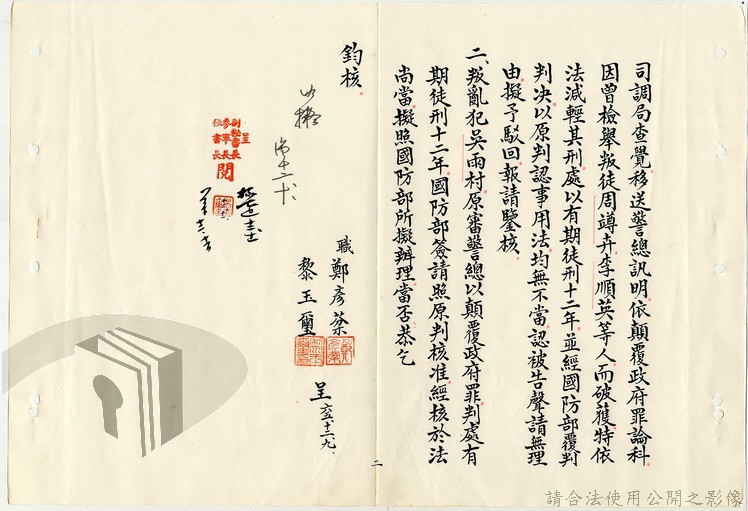 司調局查覺移送警總訊明依顛覆政府罪論科
因曾檢舉叛徒周蹲卉李順英等人而破獲特依
法減輕其刑處以有期徒刑十二年並經國防部覆判
判決以原判認事用法均無不當認被告聲請無理
由擬予駁回報請鑒核
二、叛亂犯吳雨村原審警總以顛覆政府罪判處有
期徒刑十二年國防部簽請照原判核准經核於法
尚當擬照國防部所擬辦理當否恭乞
鈞核
職 鄭彥棻
黎玉璽
呈 六五十二九
如擬
呈
副秘書長
參軍長
秘書長
閱
二
請合法使用公開之影像